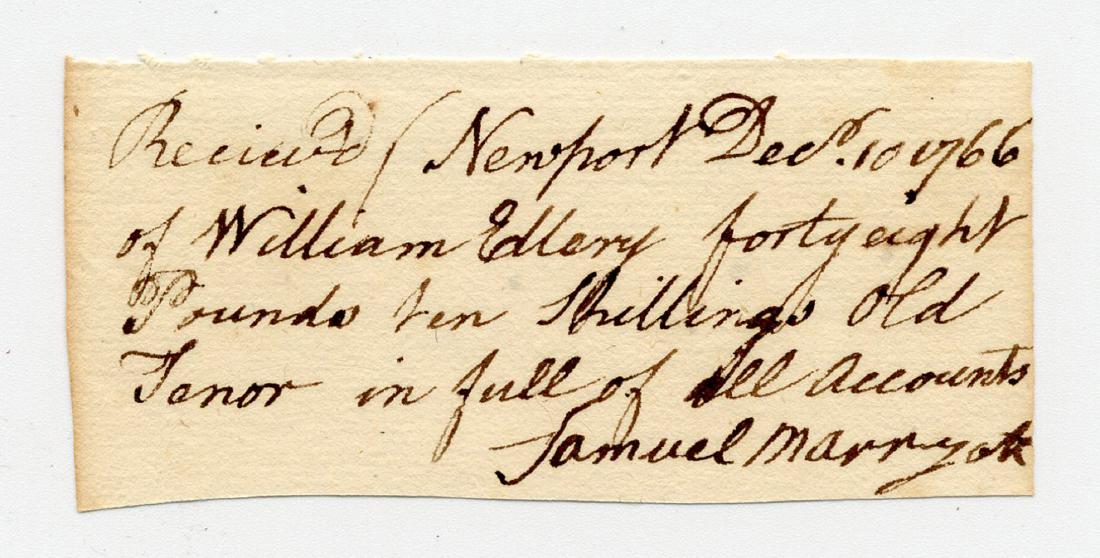 Reciev'd ( Newport Decr. 10 1766
of William Edlery forty eight
Pounds ten Shillings Old
Tenor in full of All Accounts
Samuel Marryott